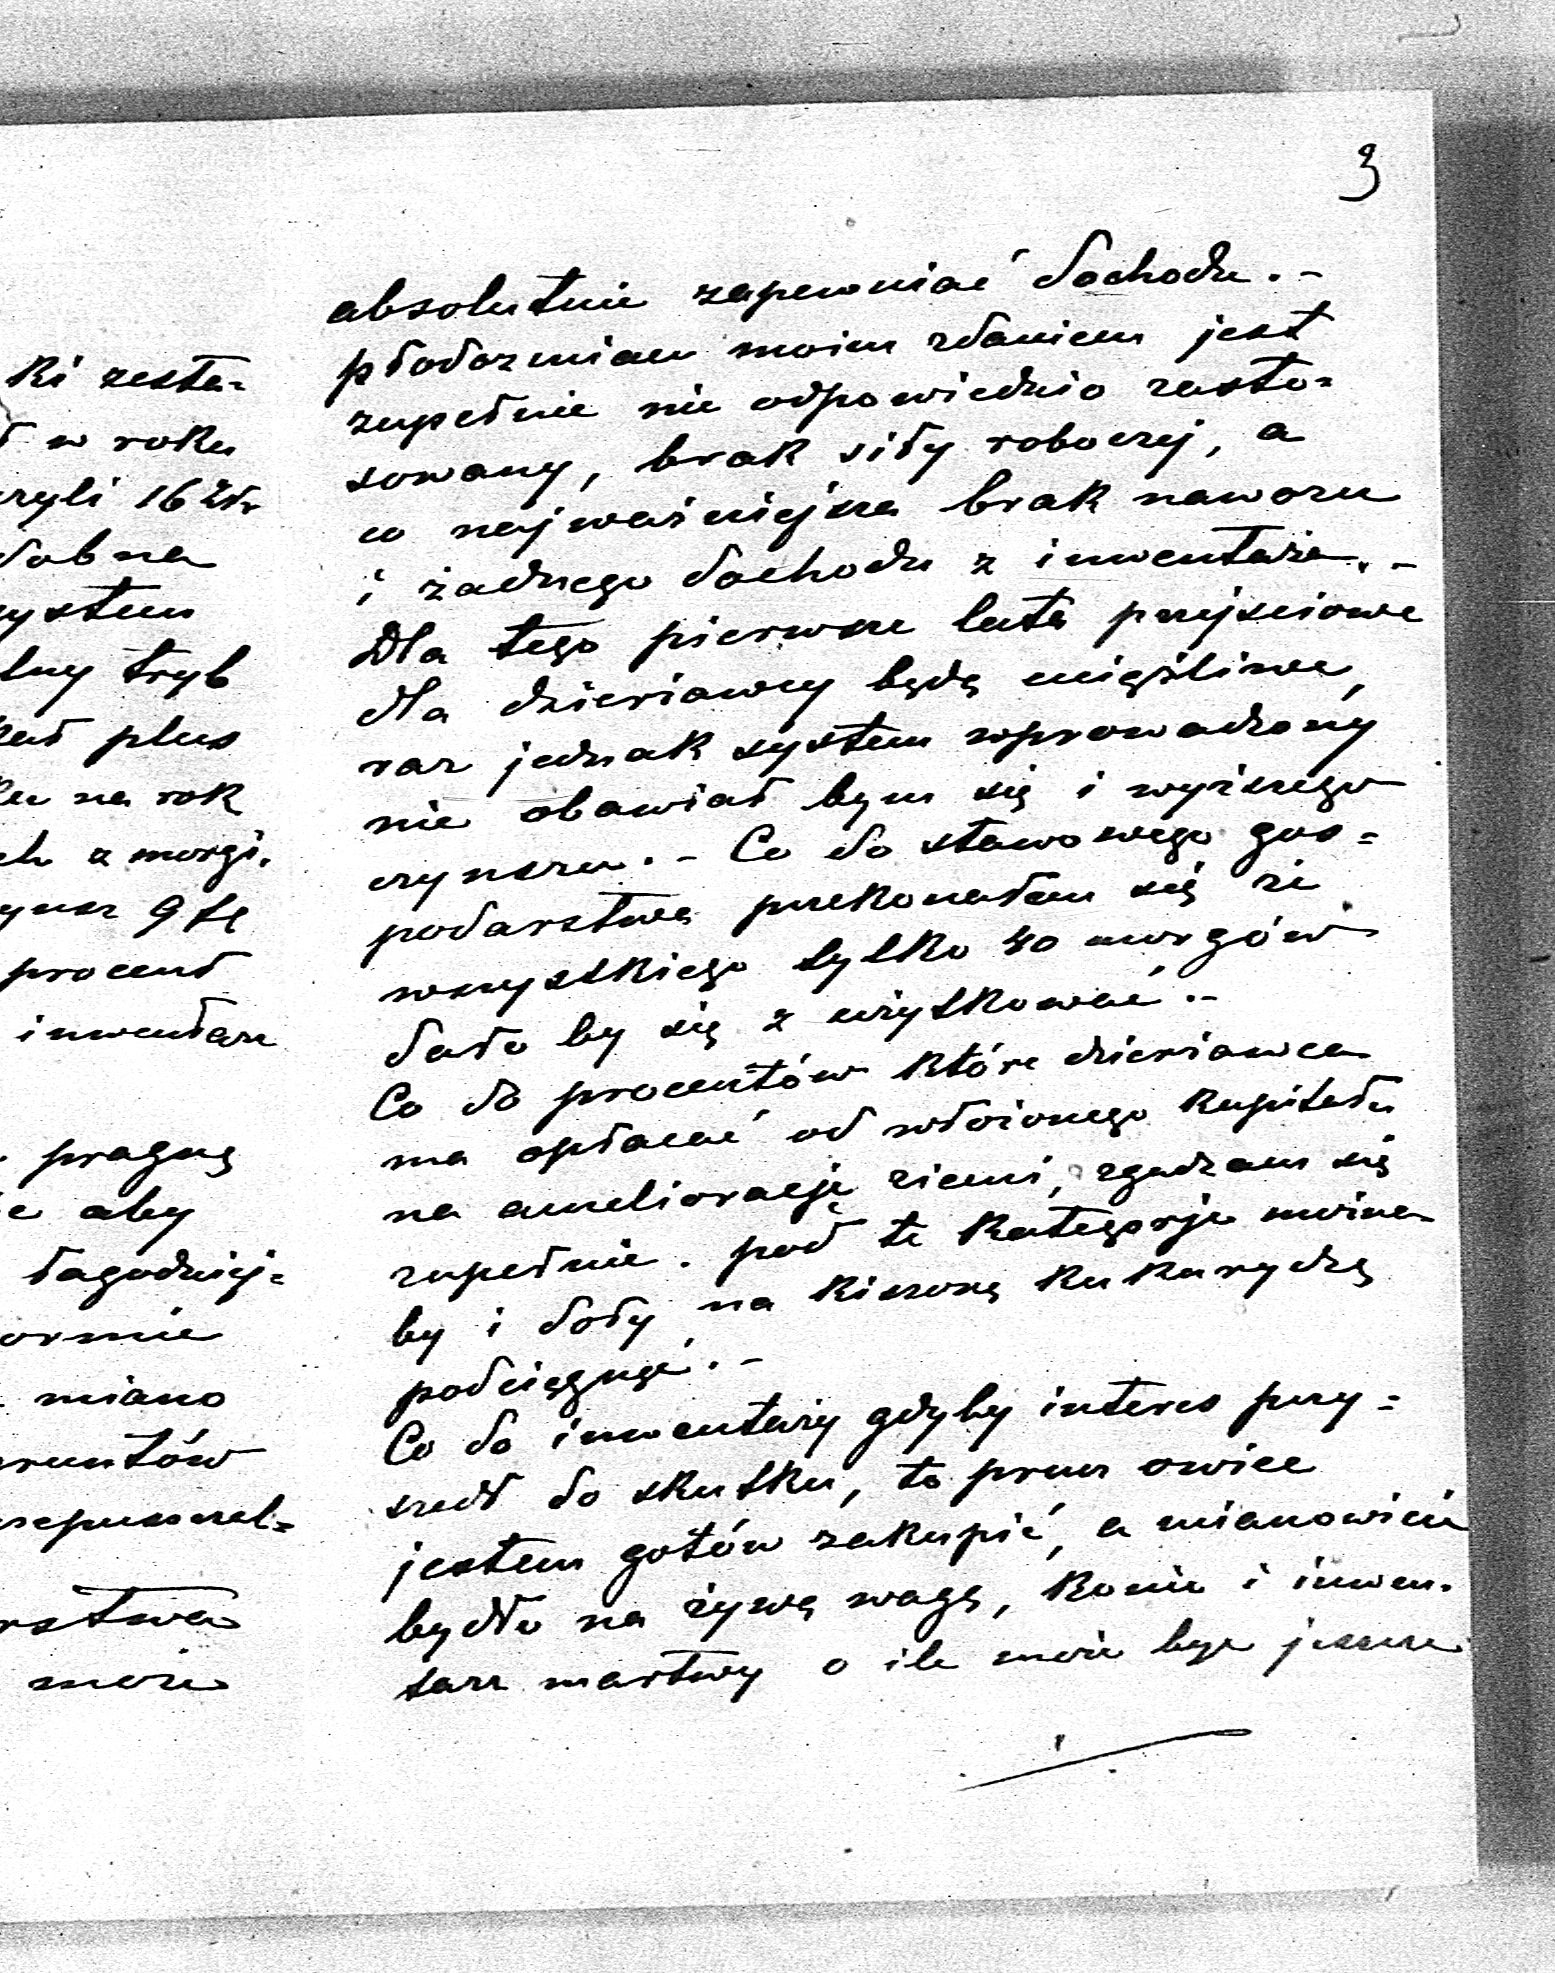 3
absolutnie zapewniać dochodu.-
płodozmian moim zdaniem jest
zupełnie nie odpowiednio zasto=
sowany, brak siły roboczej, a
co najważniejsze brak nawozu
i żadnego dochodu z inwentarza.-
Dla tego pierwsze lata przejściowe
dla dzierżawcy będą uciążliwe,
raz jednak system wprowadzony
nie obawiał bym się i wyższego
czynszu.- Co do stawowego gos=
podarstwa przekonałem się że
wszystkiego tylko 40 morgów
dało by się z użytkować.-
Co do procentów które dzierżawca
ma opłacać od włożonego kapitału
na amelioracje ziemi, zgadzam się
zupełnie. pod te kategorje można
by i doły na kiszoną kukurydzę
podciągnąć.-
Co do inwentarzy gdyby interes przy=
szedł do skutku, to prucz owiec
jestem gotów zakupić, a mianowicie
bydło na żywą wagę, konie i inwen.
tarz martwy o ile może być jeszcze
ki zesta=
w roku
czyli 16
dobna
system
lny tryb
plus
na rok
z morgi.
procent
inwentarz
pragnę
aby
łagodniej=
ormie
miano
runtów
rstwa
może